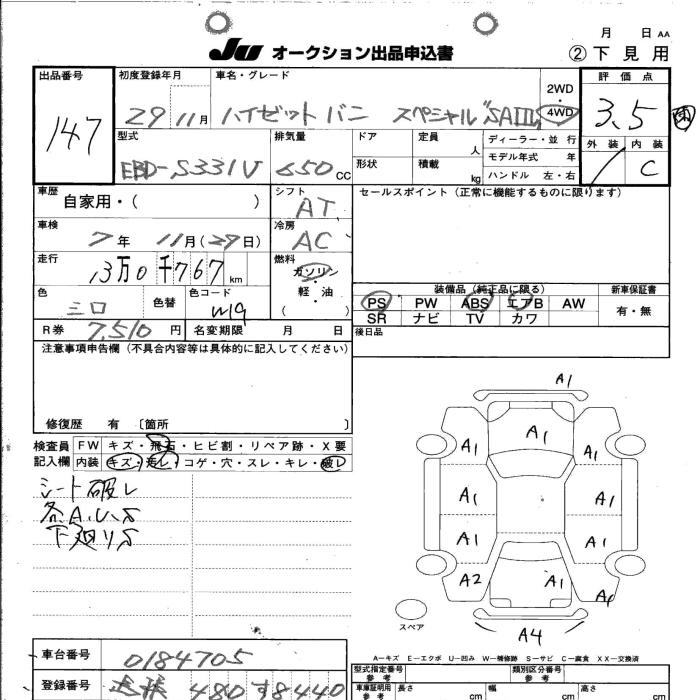 月 日 AA
JU オークション出品申込書 ②下見用
出品番号 初度登録年月 車名・グレード 2WD・4WD 評価点
147 29 11月 ハイゼットバン スペシャル"SAⅢ" 3.5
型式 排気量 ドア 定員 人 ディーラー・並行 外装 内装
EBD-S331V 650 CC 形状 積載 kg モデル年式 年 C
ハンドル 左・右
車歴 シフト セールスポイント（正常に機能するものに限ります）
自家用・（ ） AT
車検 冷房
7年 11月(29日) AC
走行 燃料
13万0千767 km ガソリン・軽・油
（ ）
色 色替 色コード 装備品（純正品に限る） 新車保証書
シロ W19 PS PW ABS エアB AW 有・無
SR ナビ TV カワ
R券 7,510円 名変期限 月 日 後日品
注意事項申告欄（不具合内容等は具体的に記入してください）
修復歴 有 〔箇所 〕
検査員 FW キズ・飛石・ヒビ割・リペア跡・X要
記入欄 内装 キズ・汚レ・コゲ・穴・スレ・キレ・破レ
シート破レ
各A.U.S
下廻りS
A1
A1 A1 A1
A1 A1
A1 A1
A2 A1
A4
スペア
A－キズ E－エクボ U－凹み W－補修跡 S－サビ C－腐食 XX－交換済
車台番号 0184705
型式指定番号 参考 類別区分番号 参考
登録番号 480 す8440
車庫証明用 参考 長さ cm 幅 cm 高さ cm